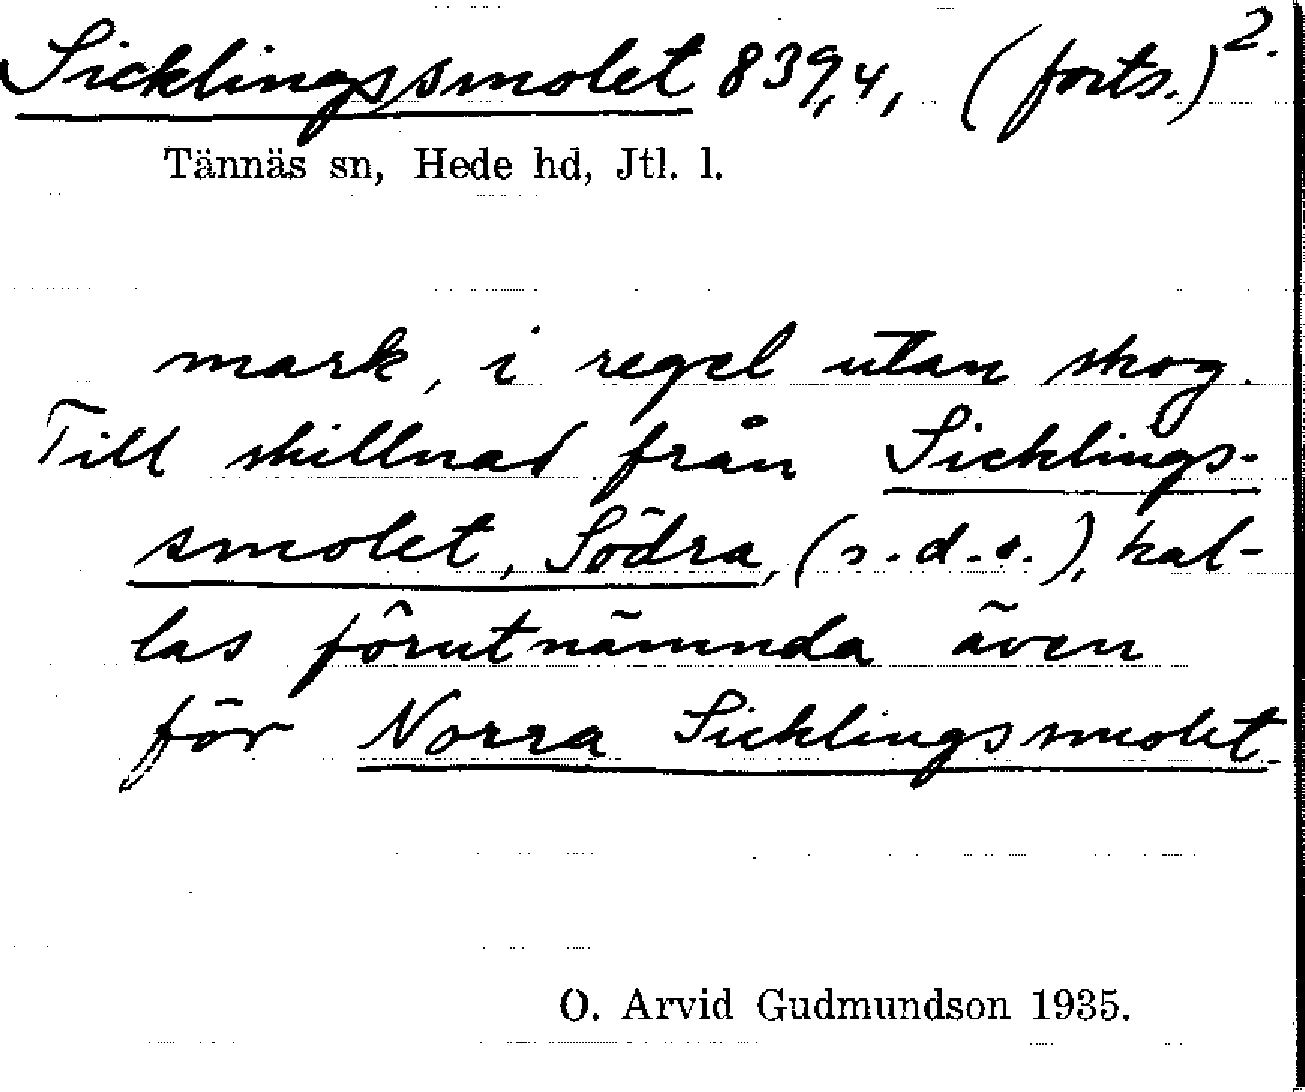 Sicklingssmolet 839,4, (forts.) 2.
Tännäs sn, Hede hd, Jtl. l.
mark, i regel utan skog.
Till skillnad från Sicklings-
smolet, Södra, (s.d.o.), kal-
las förutnämnda även
för Norra Sicklingssmolet.
O. Arvid Gudmundson 1935.